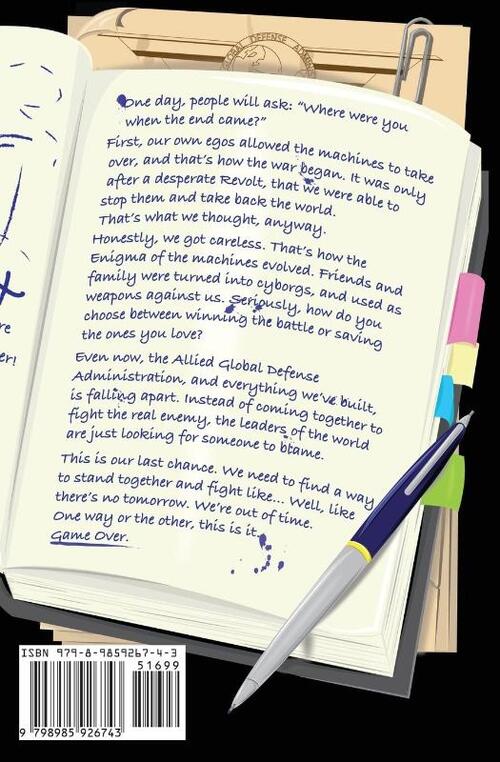 GLOBAL DEFENSE ADMINIS
One day, people will ask: "Where were you
when the end came?"
First, our own egos allowed the machines to take
over, and that's how the war began. It was only
after a desperate Revolt, that we were able to
stop them and take back the world.
That's what we thought, anyway.
Honestly, we got careless. That's how the
Enigma of the machines evolved. Friends and
family were turned into cyborgs, and used as
weapons against us. Seriously, how do you
choose between winning the battle or saving
the ones you love?
Even now, the Allied Global Defense
Administration, and everything we've built,
is falling apart. Instead of coming together to
fight the real enemy, the leaders of the world
are just looking for someone to blame.
This is our last chance. We need to find a way
to stand together and fight like... Well, like
there's no tomorrow. We're out of time.
One way or the other, this is it.
Game Over.
re
er!
ISBN 979-8-9859267-4-3
51699
9 798985 926743